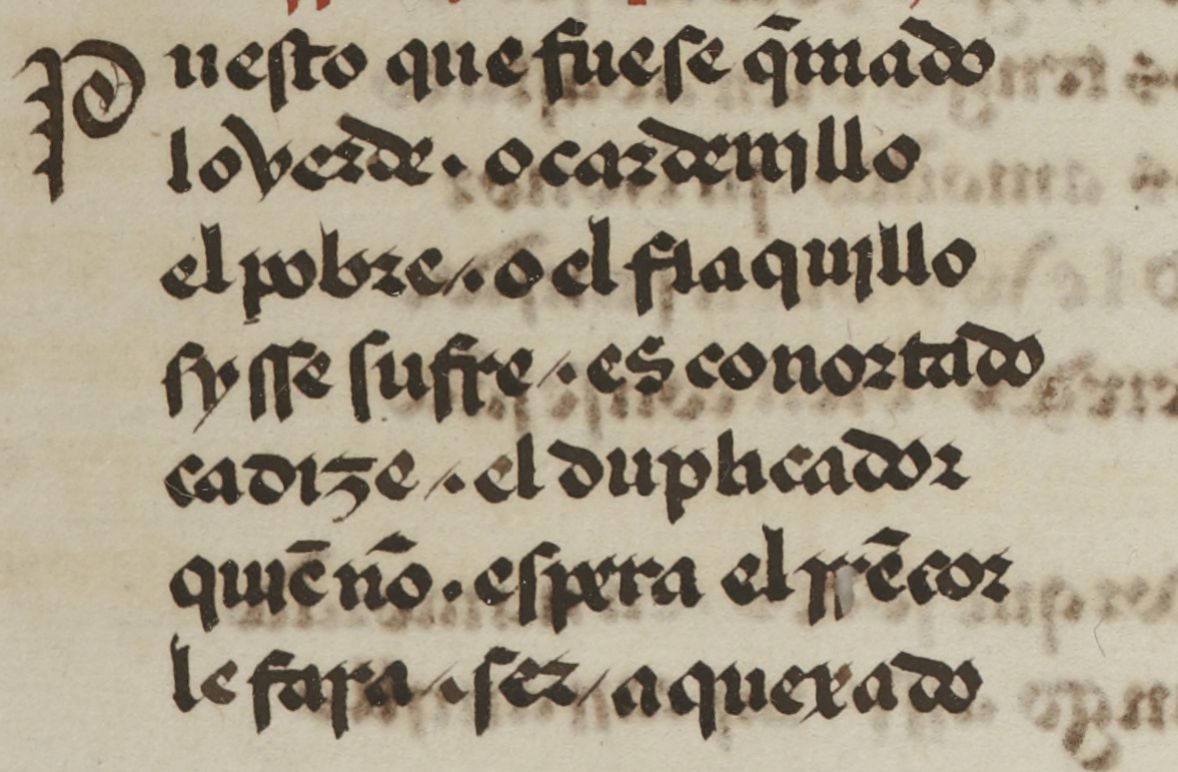 Puesto que fuese q̄mado
lo verde · o cardenjllo
el pobre /· o el flaqujllo
sy sse sufre /· es conortado
ca dize /· el duplicador
quiē nō · espera el rrēcor
le fara /· ser / aquexado